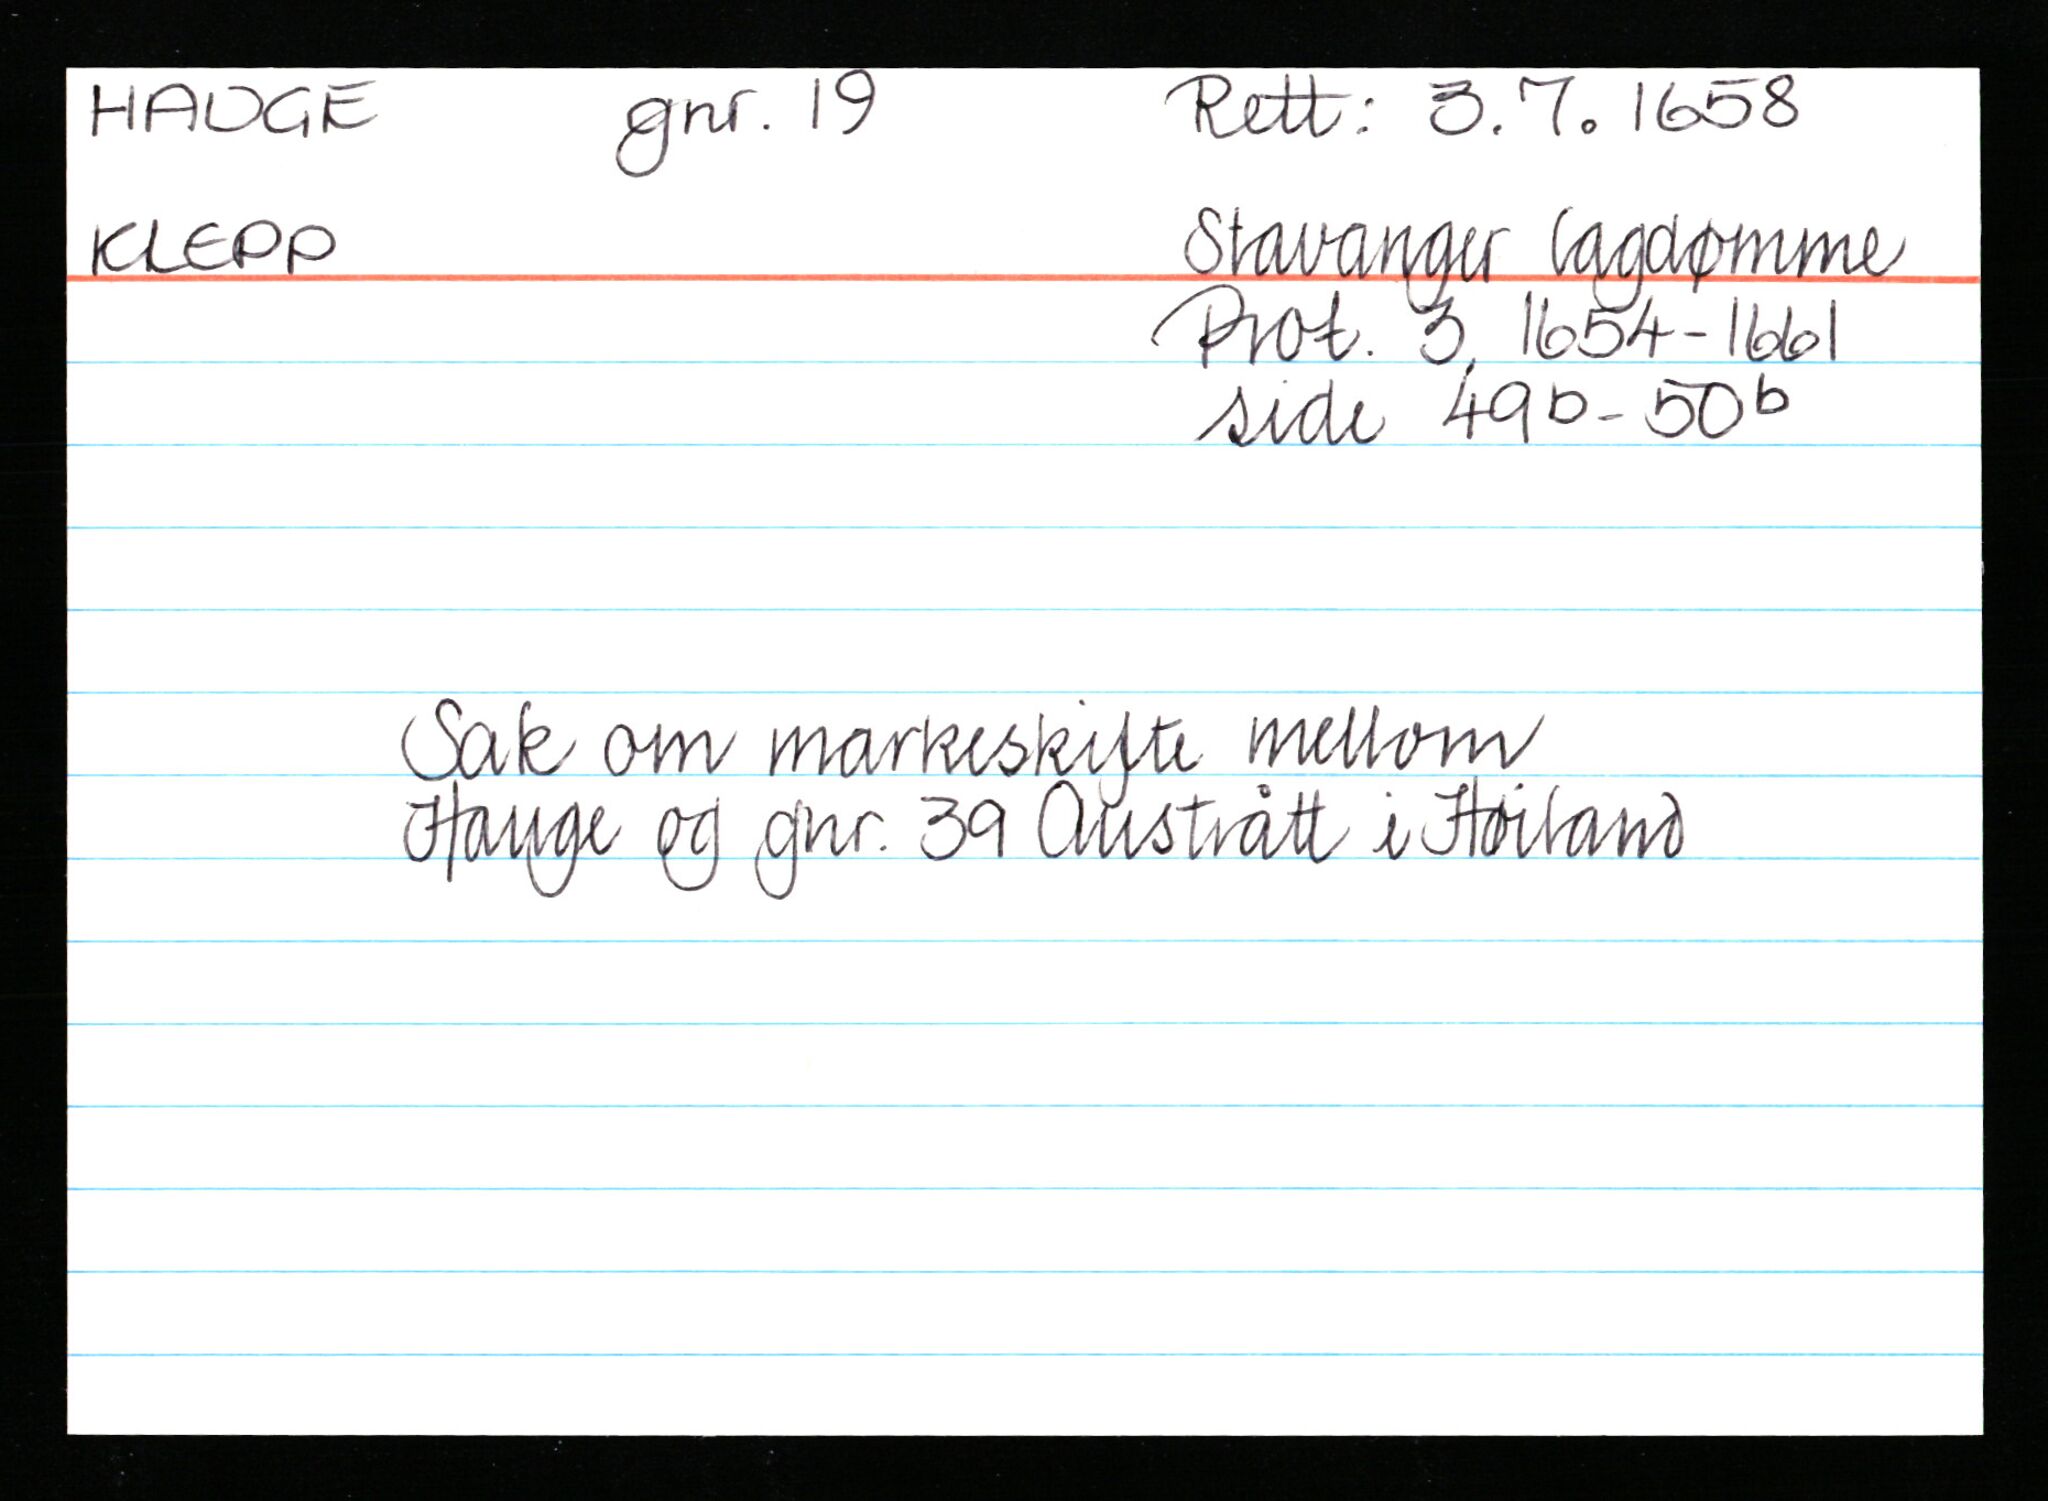 HAUGE gnr. 19 Rett: 3.7.1658
KLEPP Stavanger lagdømme
Prot. 3, 1654-1661
side 49b-50b
Sak om markeskifte mellom
Hauge og gnr. 39 Austrått i Høiland